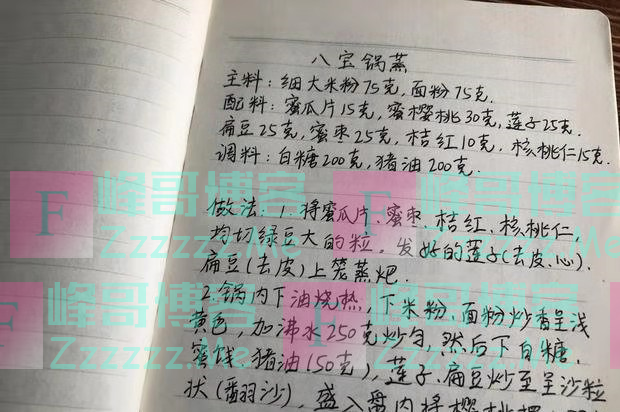 八宝锅蒸
主料：细大米粉75克，面粉75克．
配料：蜜瓜片15克，蜜樱桃30克，莲子25克．
扁豆25克，蜜枣25克，桔红10克，核桃仁15克．
调料：白糖200克，猪油200克．
做法：1．将蜜瓜片、蜜枣、桔红、核桃仁，
均切绿豆大的粒，发好的莲子(去皮、心)．
扁豆(去皮)上笼蒸𤆵．
2．锅内下油烧热，下米粉、面粉炒香呈浅
黄色，加沸水250克炒匀，然后下白糖、
蜜饯、猪油(50克)，莲子、扁豆炒至呈沙粒
状(翻沙)，盛入盘内将樱桃摆
F 峰哥博客
Zzzzzz.Me
F 峰哥博客
Zzzzzz.Me
F 峰哥博客
Zzzzzz.Me
F 峰哥博客
Zzzzzz.Me